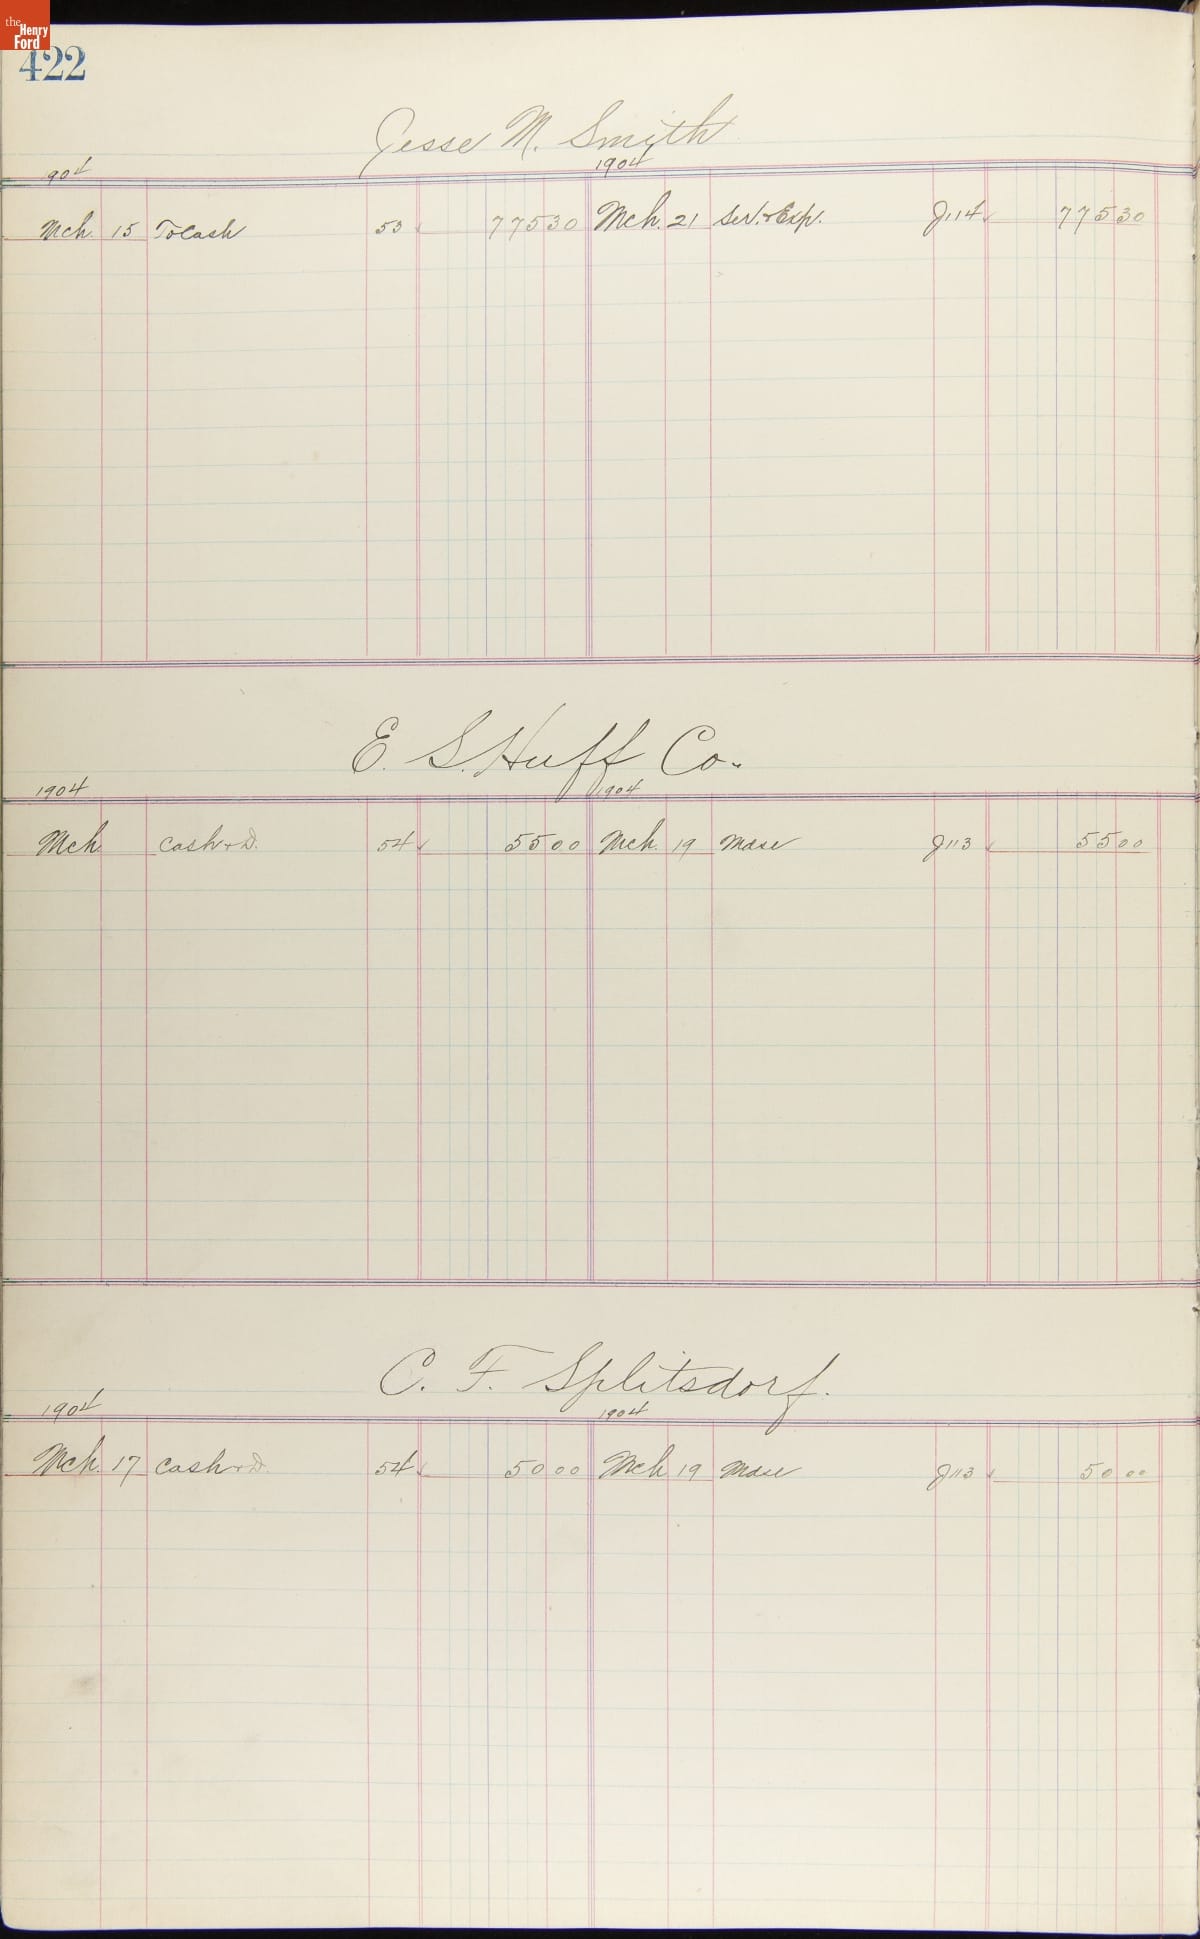 the Henry Ford
422
Jesse M. Smith
1904 1904
Mch. 15 To Cash 53 775 30 Mch. 21 Ser. & Exp. J114 775 30
E. S. Huff Co.
1904 1904
Mch Cash & D. 54 55 00 Mch. 19 Mdse J113 55 00
C. F. Splitsdorf.
1904 1904
Mch. 17 Cash & D. 54 50 00 Mch 19 Mdse J113 50 00